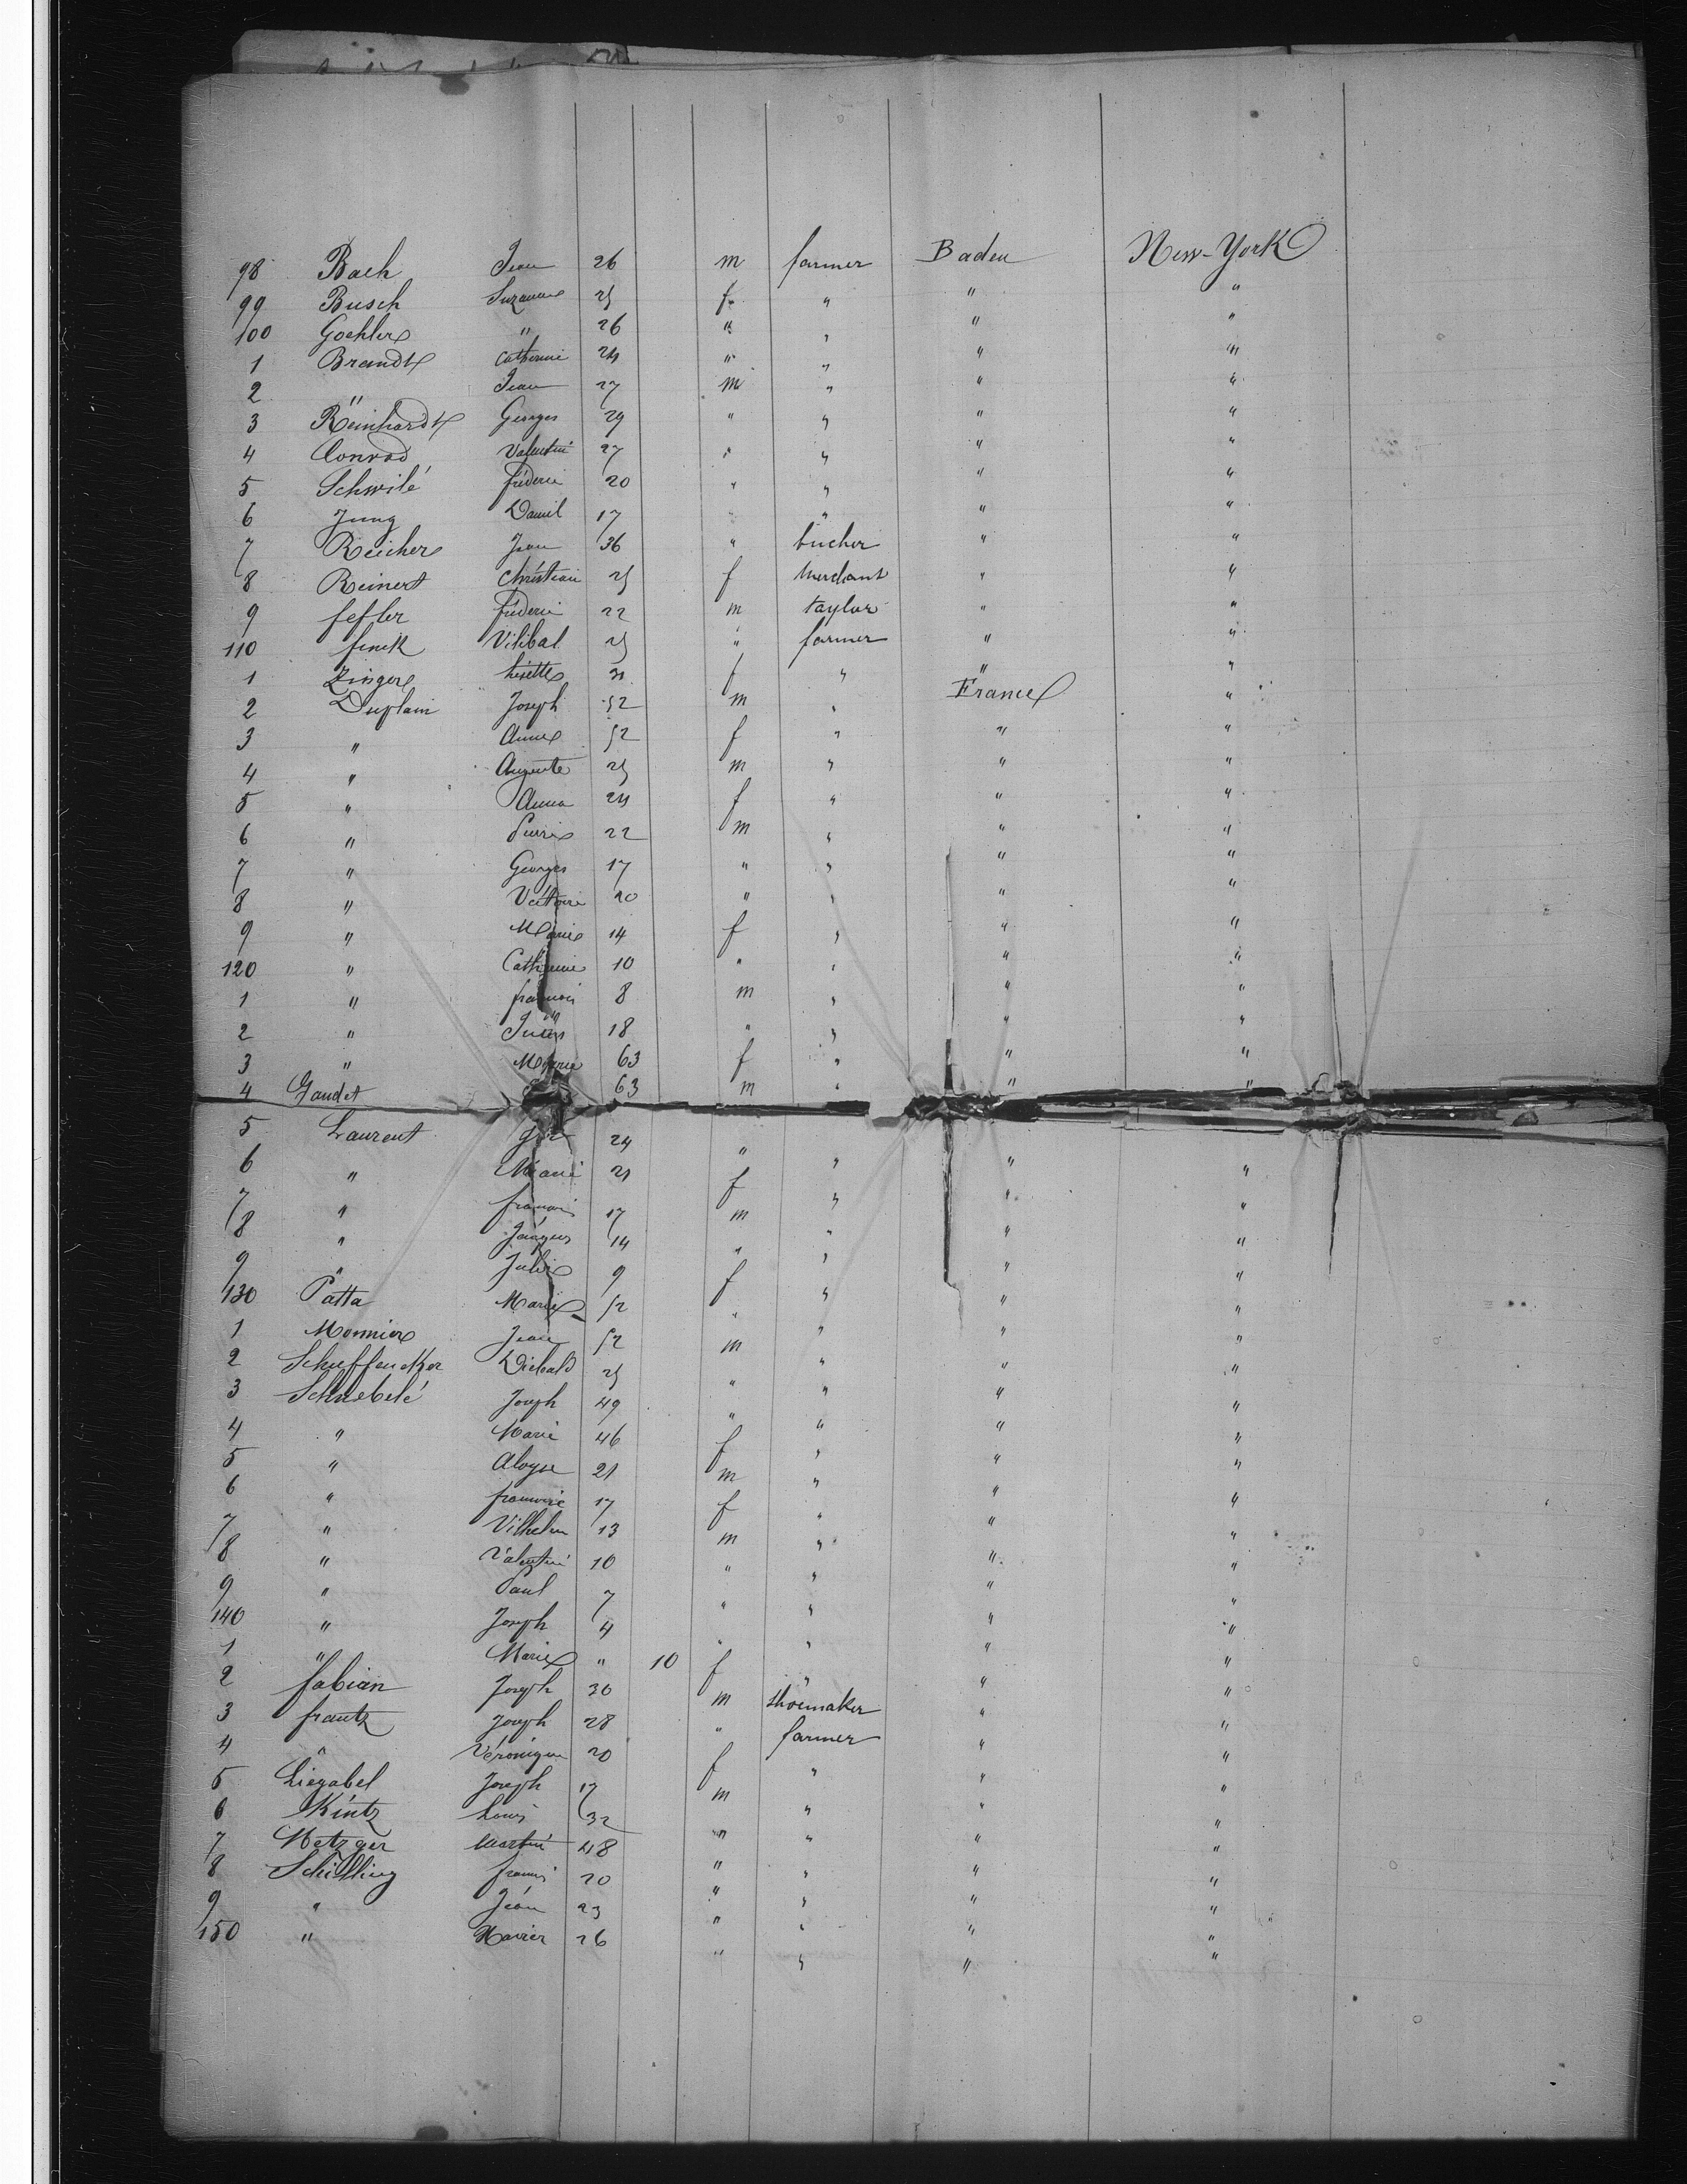 98 Bach Jean 26 m farmer Baden New-York
99 Busch Suzanne 25 f " " "
100 Goehler " 26 " " " "
1 Brandt Catherine 24 " " " "
2 " Jean 27 m " " "
3 Reinhardt Georges 29 " " " "
4 Conrad Valentin 27 " " " "
5 Schwilé fréderic 20 " " " "
6 Jung Daniel 17 " " " "
7 Reicher Jean 36 " bucher " "
8 Reinert Christian 25 f merchant " "
9 fefler fréderic 22 m taylor " "
110 finck Vilibal 25 " farmer " "
1 Zinger Lisette 21 f " " "
2 Duplain Joseph 52 m " France "
3 " Anne 52 f " " "
4 " Auguste 25 m " " "
5 " Anna 24 f " " "
6 " Pierre 22 m " " "
7 " Georges 17 " " " "
8 " Victoire 20 " " " "
9 " Marie 14 f " " "
120 " Catherine 10 " " " "
1 " francois 8 m " " "
2 " Jules 18 " " " "
3 " Marie 63 f " " "
4 Gaudet 63 m " " "
5 Laurent 24 " " " "
6 " Marie 21 f " " "
7 " francois 17 m " " "
8 " Jacques 14 " " " "
9 " Julie 9 f " " "
130 Patta Marie 52 " " " "
1 Monnier Jean 52 m " " "
2 Schuffenecker Diebald 25 " " " "
3 Schnebelé Joseph 49 " " " "
4 " Marie 46 f " " "
5 " Aloyse 21 m " " "
6 " francoise 17 f " " "
7 " Vilhelm 13 m " " "
8 " Valentin 10 " " " "
9 " Paul 7 " " " "
140 " Joseph 4 " " " "
1 " Marie " 10 f " " "
2 fabian Joseph 30 m shoemaker " "
3 frantz Joseph 28 " farmer " "
4 " Véronique 20 f " " "
5 Liegabel Joseph 17 m " " "
6 Kintz Louis 32 " " " "
7 Metzger Martin 48 " " " "
8 Schilling francois 20 " " " "
9 " Jean 23 " " " "
150 " Xavier 26 " " " "